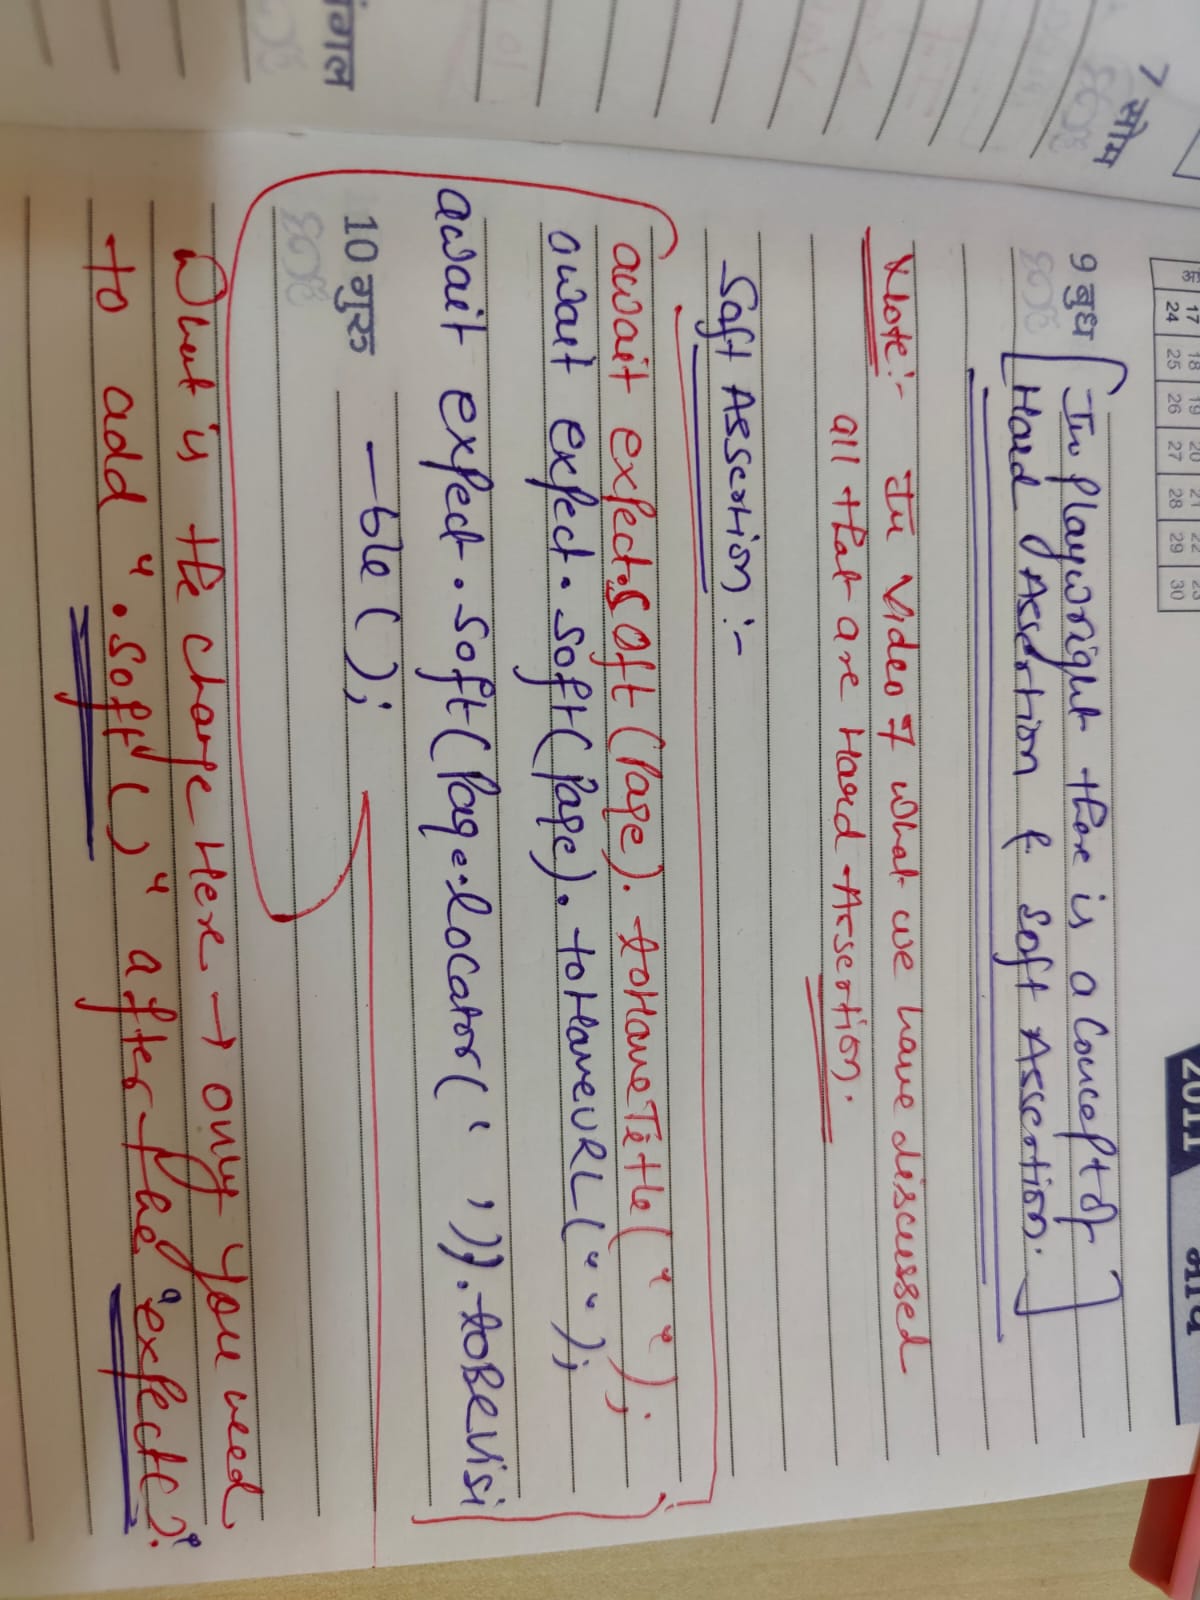 7 सोम
मंगल
2011
17 18 19 20 21 22 23
24 25 26 27 28 29 30
9 बुध
[In Playwright there is a concept of
Hard Assertion & Soft Assertion.]
Note:- In Video 7 what we have discussed
all that are Hard Assertion.
Soft Assertion :-
await expect.soft(page).toHaveTitle(" ");
await expect.soft(page).toHaveURL(" ");
await expect.soft(page.locator(' ')).toBeVisi
10 गुरु
—ble();
What is the change Here → only you need
to add ".soft()" after the "expect()".